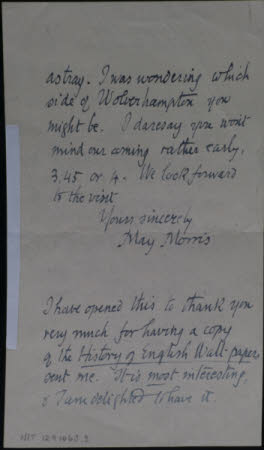 astray. I was wondering which
side of Wolverhampton you
might be. I daresay you won't
mind our coming rather early,
3.45 or 4. We look forward
to the visit
Yours sincerely
May Morris
I have opened this to thank you
very much for having a copy
of the History of English Wall-paper
sent me. It is most interesting,
& I am delighted to have it.
NT 1291660.2